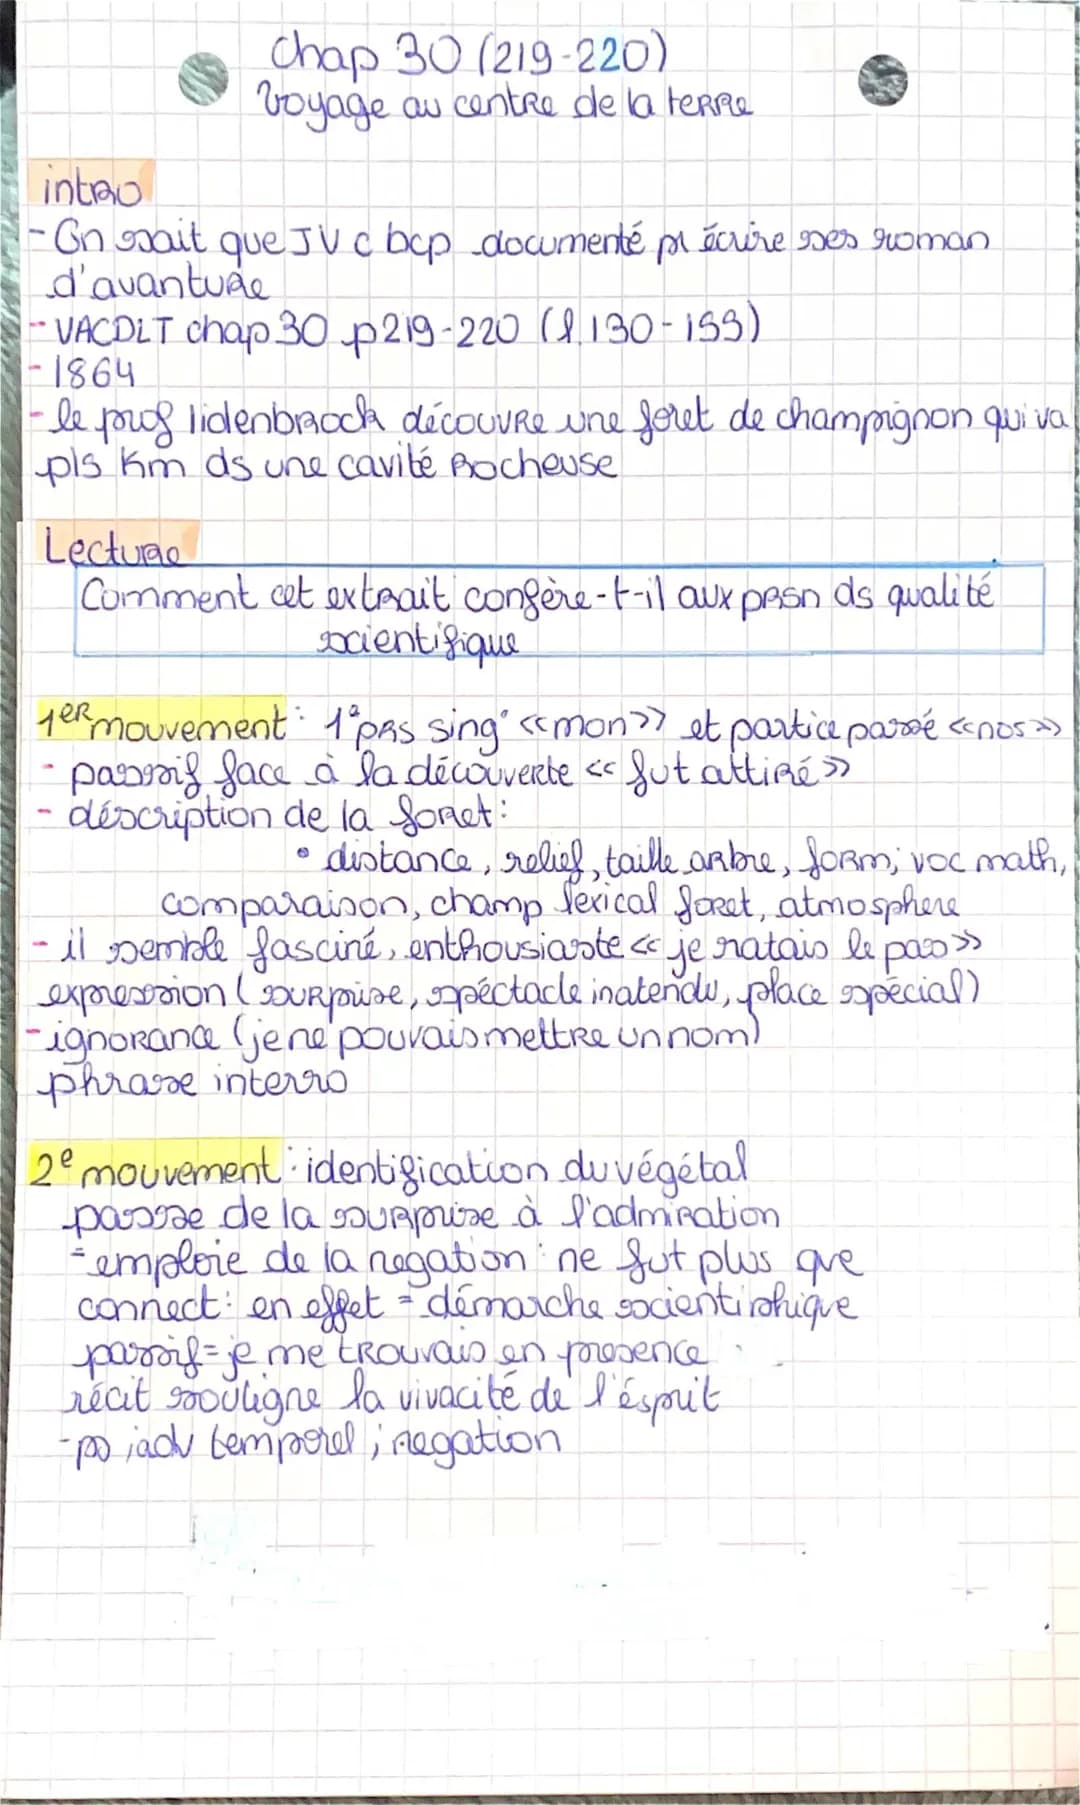 Chap 30 (219-220)
Voyage au centre de la terre
intro
- On sait que JV c bcp documenté pr écrire ses roman
d'avanture
- VACDLT chap 30 p219-220 (l.130-159)
- 1864
- le prof lidenbrock découvre une foret de champignon qui va
pls Km ds une cavité Rocheuse
Lecture
Comment cet extrait confère-t-il aux prsn ds qualité
scientifique
1er mouvement : 1° prs sing° «mon» et partice passé «nos»
- passif face à la découverte « fut attiré»
- déscription de la foret :
• distance, relief, taille arbre, form; voc math,
comparaison, champ lexical foret, atmosphere
- il semble fasciné, enthousiaste « je ratais le pas»
expression ( surprise, spéctacle inatendu, place spécial)
- ignorance (je ne pouvais mettre un nom)
phrase interro
2e mouvement : identification du végétal
passe de la surprise à l'admiration
- emploie de la negation : ne fut plus que
connect : en effet = démarche scientiphique
passif = je me trouvais en presence
récit souligne la vivacité de l'ésprit
- ps ; adv temporel ; negation